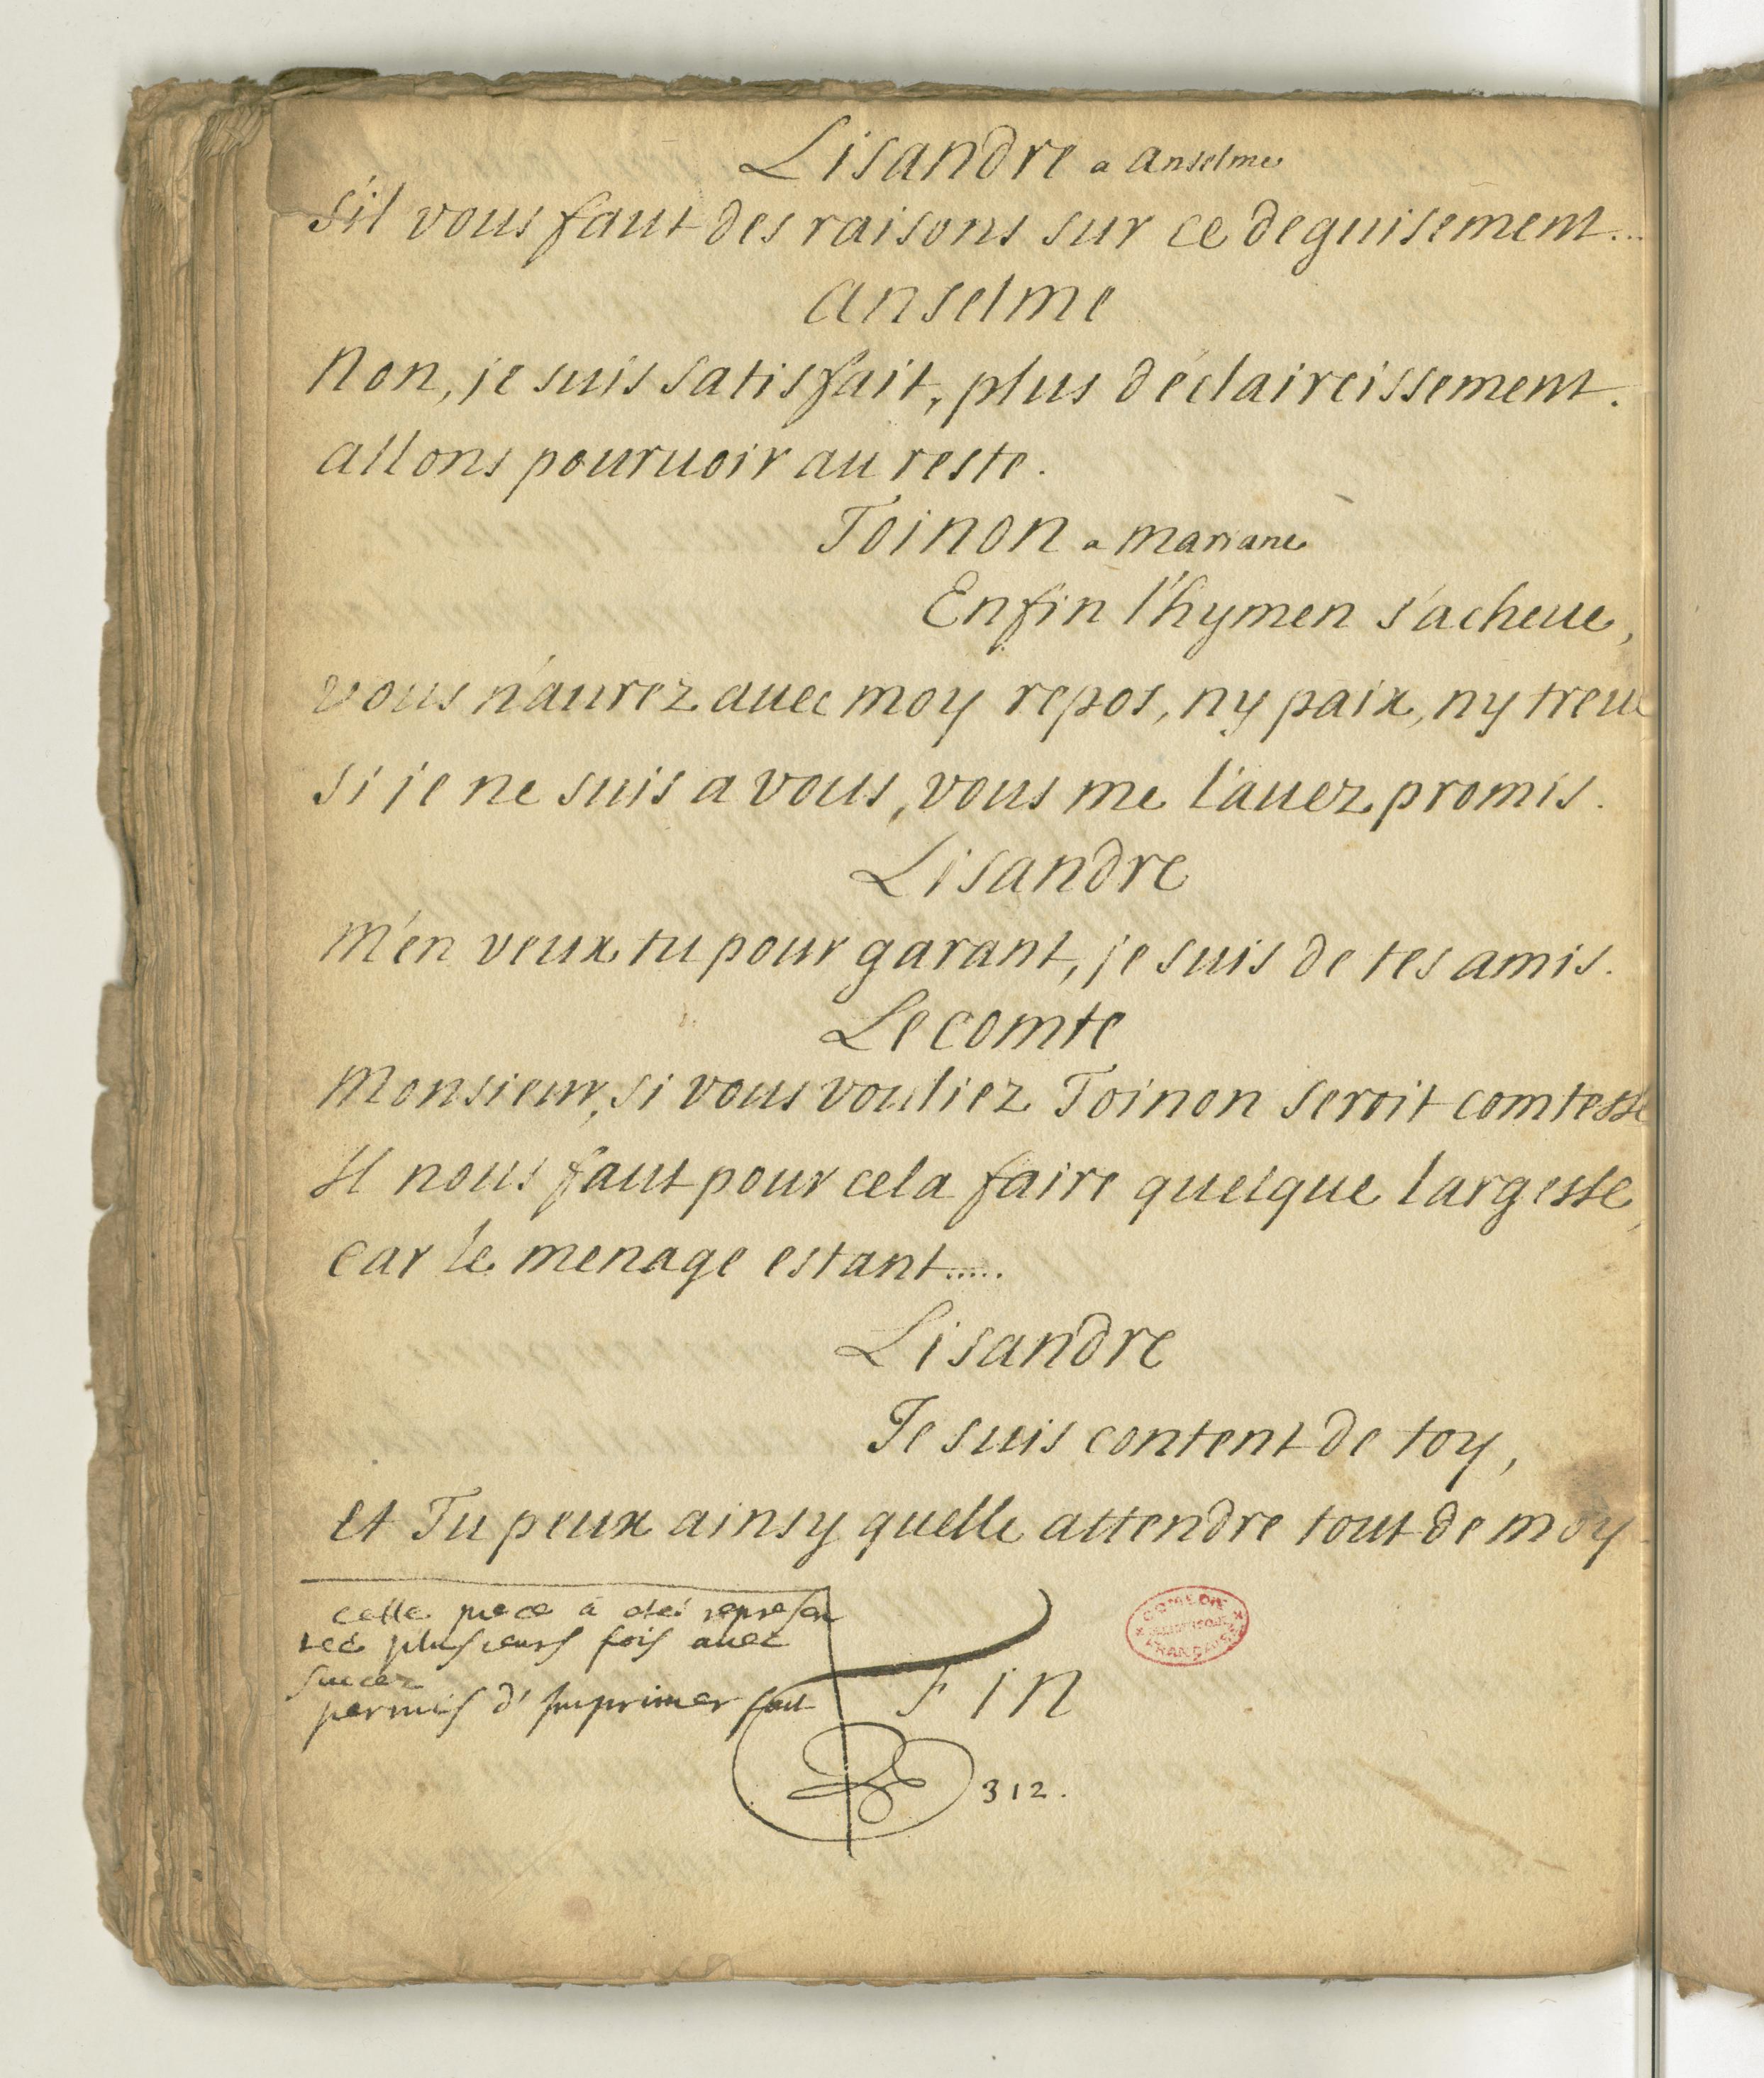 Lisandre a Anselme
S'il vous faut des raisons sur ce deguisement...
Anselme
Non, je suis satisfait, plus d'éclaircissement.
allons pouruoir au reste.
Toinon a Mariane
Enfin l'hymen s'acheue,
vous n'aurez auec moy repos, ny paix, ny treue
si je ne suis a vous, vous me l'auez promis.
Lisandre
M'en veux tu pour garant, je suis de tes amis.
Le comte
Monsieur, si vous vouliez Toinon seroit comtesse
Il nous faut pour cela faire quelque largesse,
car le menage estant.....
Lisandre
Je suis content de toy,
et Tu peux ainsy quelle attendre tout de moy
cette piece a esté represen
tée plusieurs fois auec
succez
permis d'Imprimer fait
Fin
312.
COMEDIE FRANÇAISE